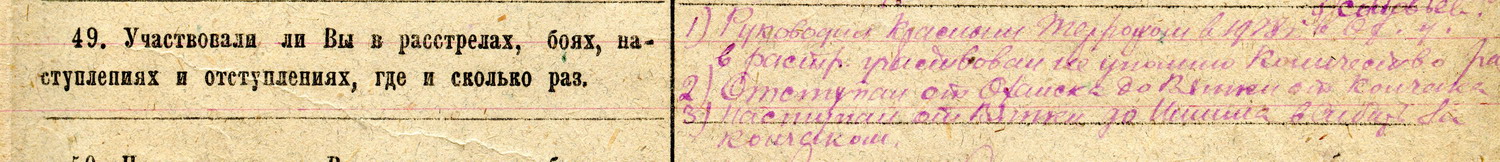 49. Участвовали ли Вы в расстрелах, боях, на-
ступлениях и отступлениях, где и сколько раз.
1) Руководил Красным Террором в 1918 г. в
в расстр. участвовал не упомню Количество ра
2) Отступал от Оханска до Вятки от Колчака
3) Наступал от Вятки до Ишима в Сибирь за
Колчаком.